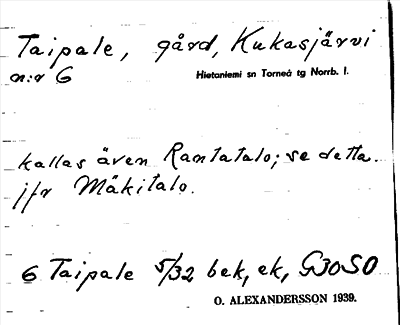 Taipale, gård, Kukasjärvi
n:r 6 Hietaniemi sn Torneå tg Norrb. l.
kallas även Rantatalo; se detta.
jfr Mäkitalo.
6 Taipale 5/32 bek, ek, G30SO
O. ALEXANDERSSON 1939.